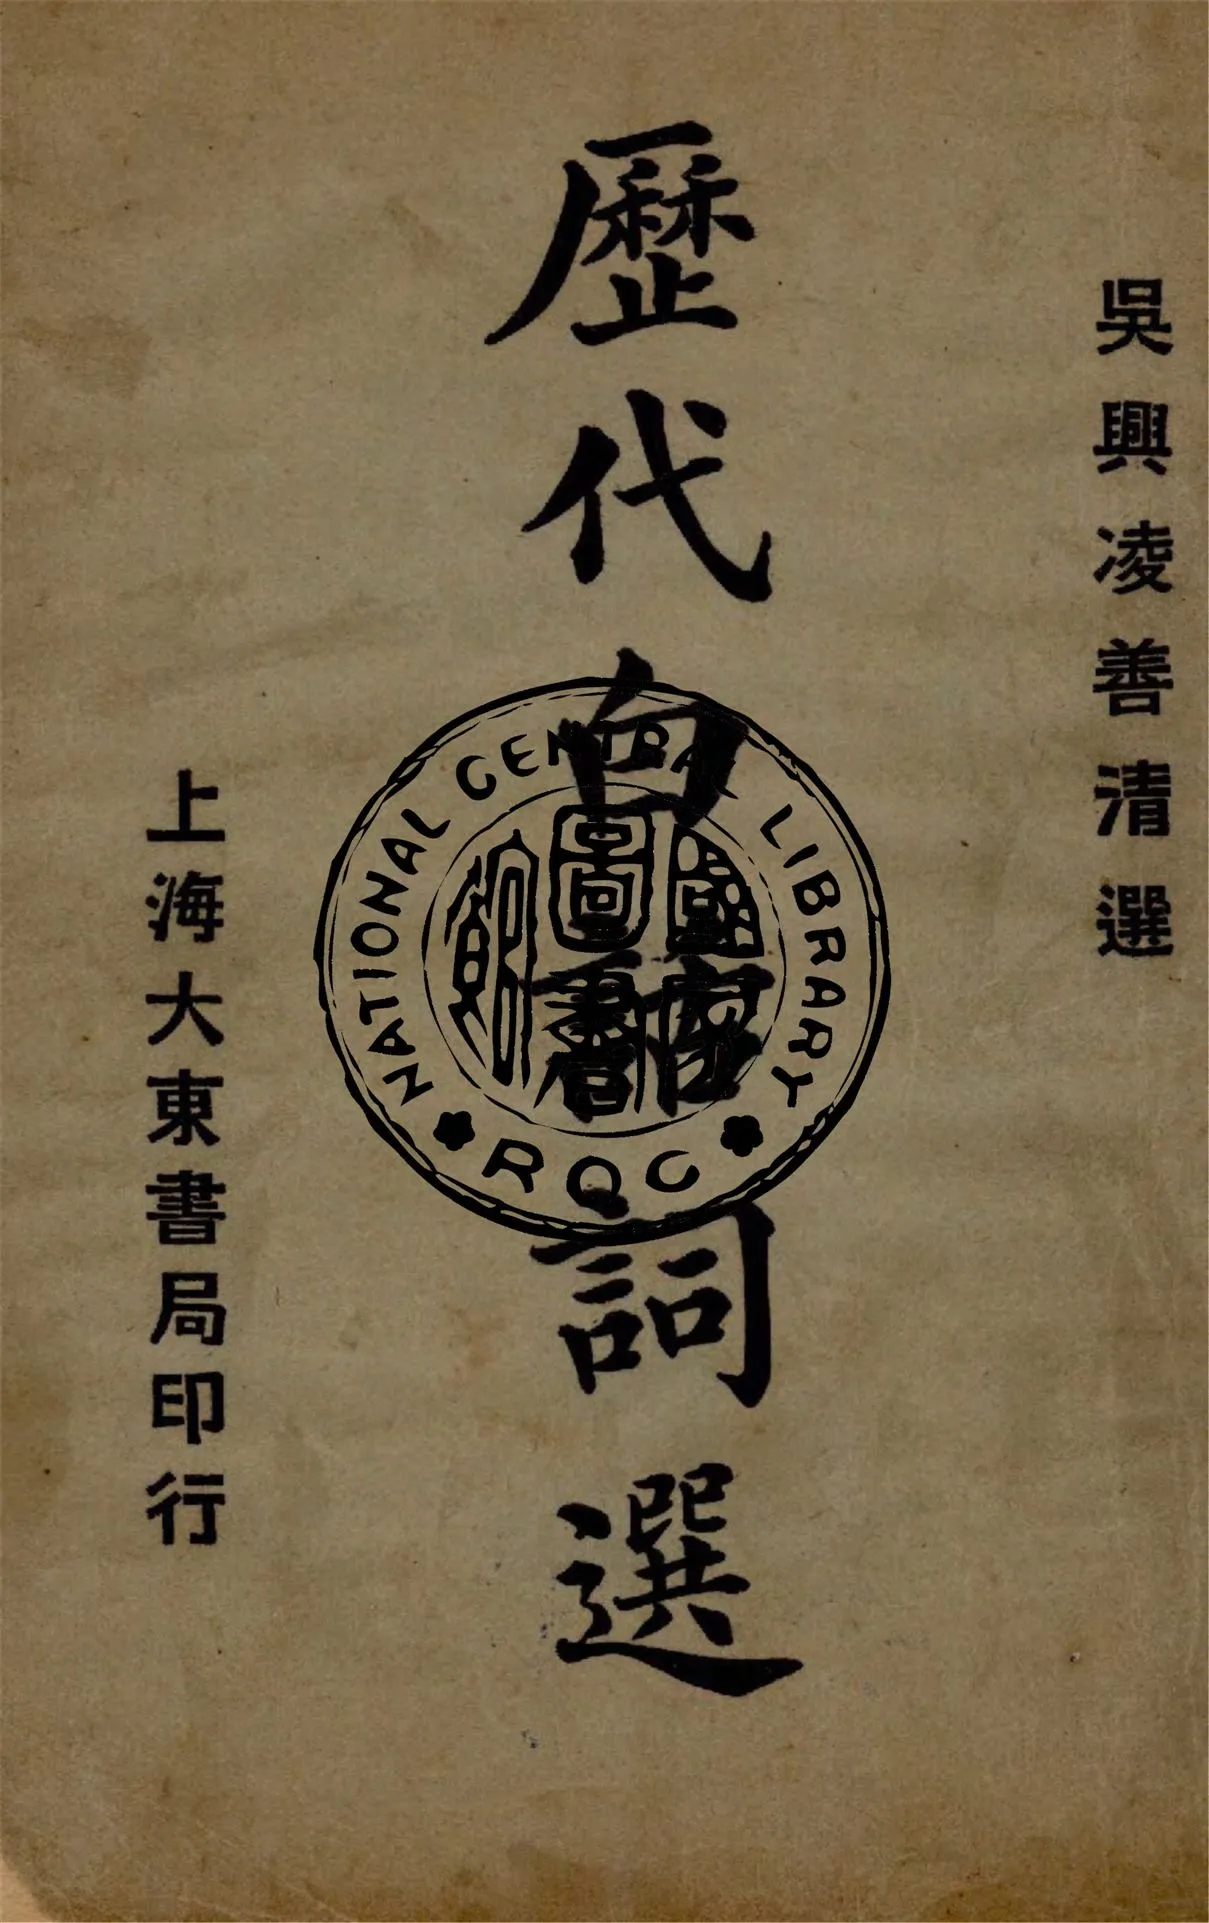 吳興凌善清選
歷代白話詞選
上海大東書局印行
NATIONAL CENTRAL LIBRARY
ROC
國家圖書館